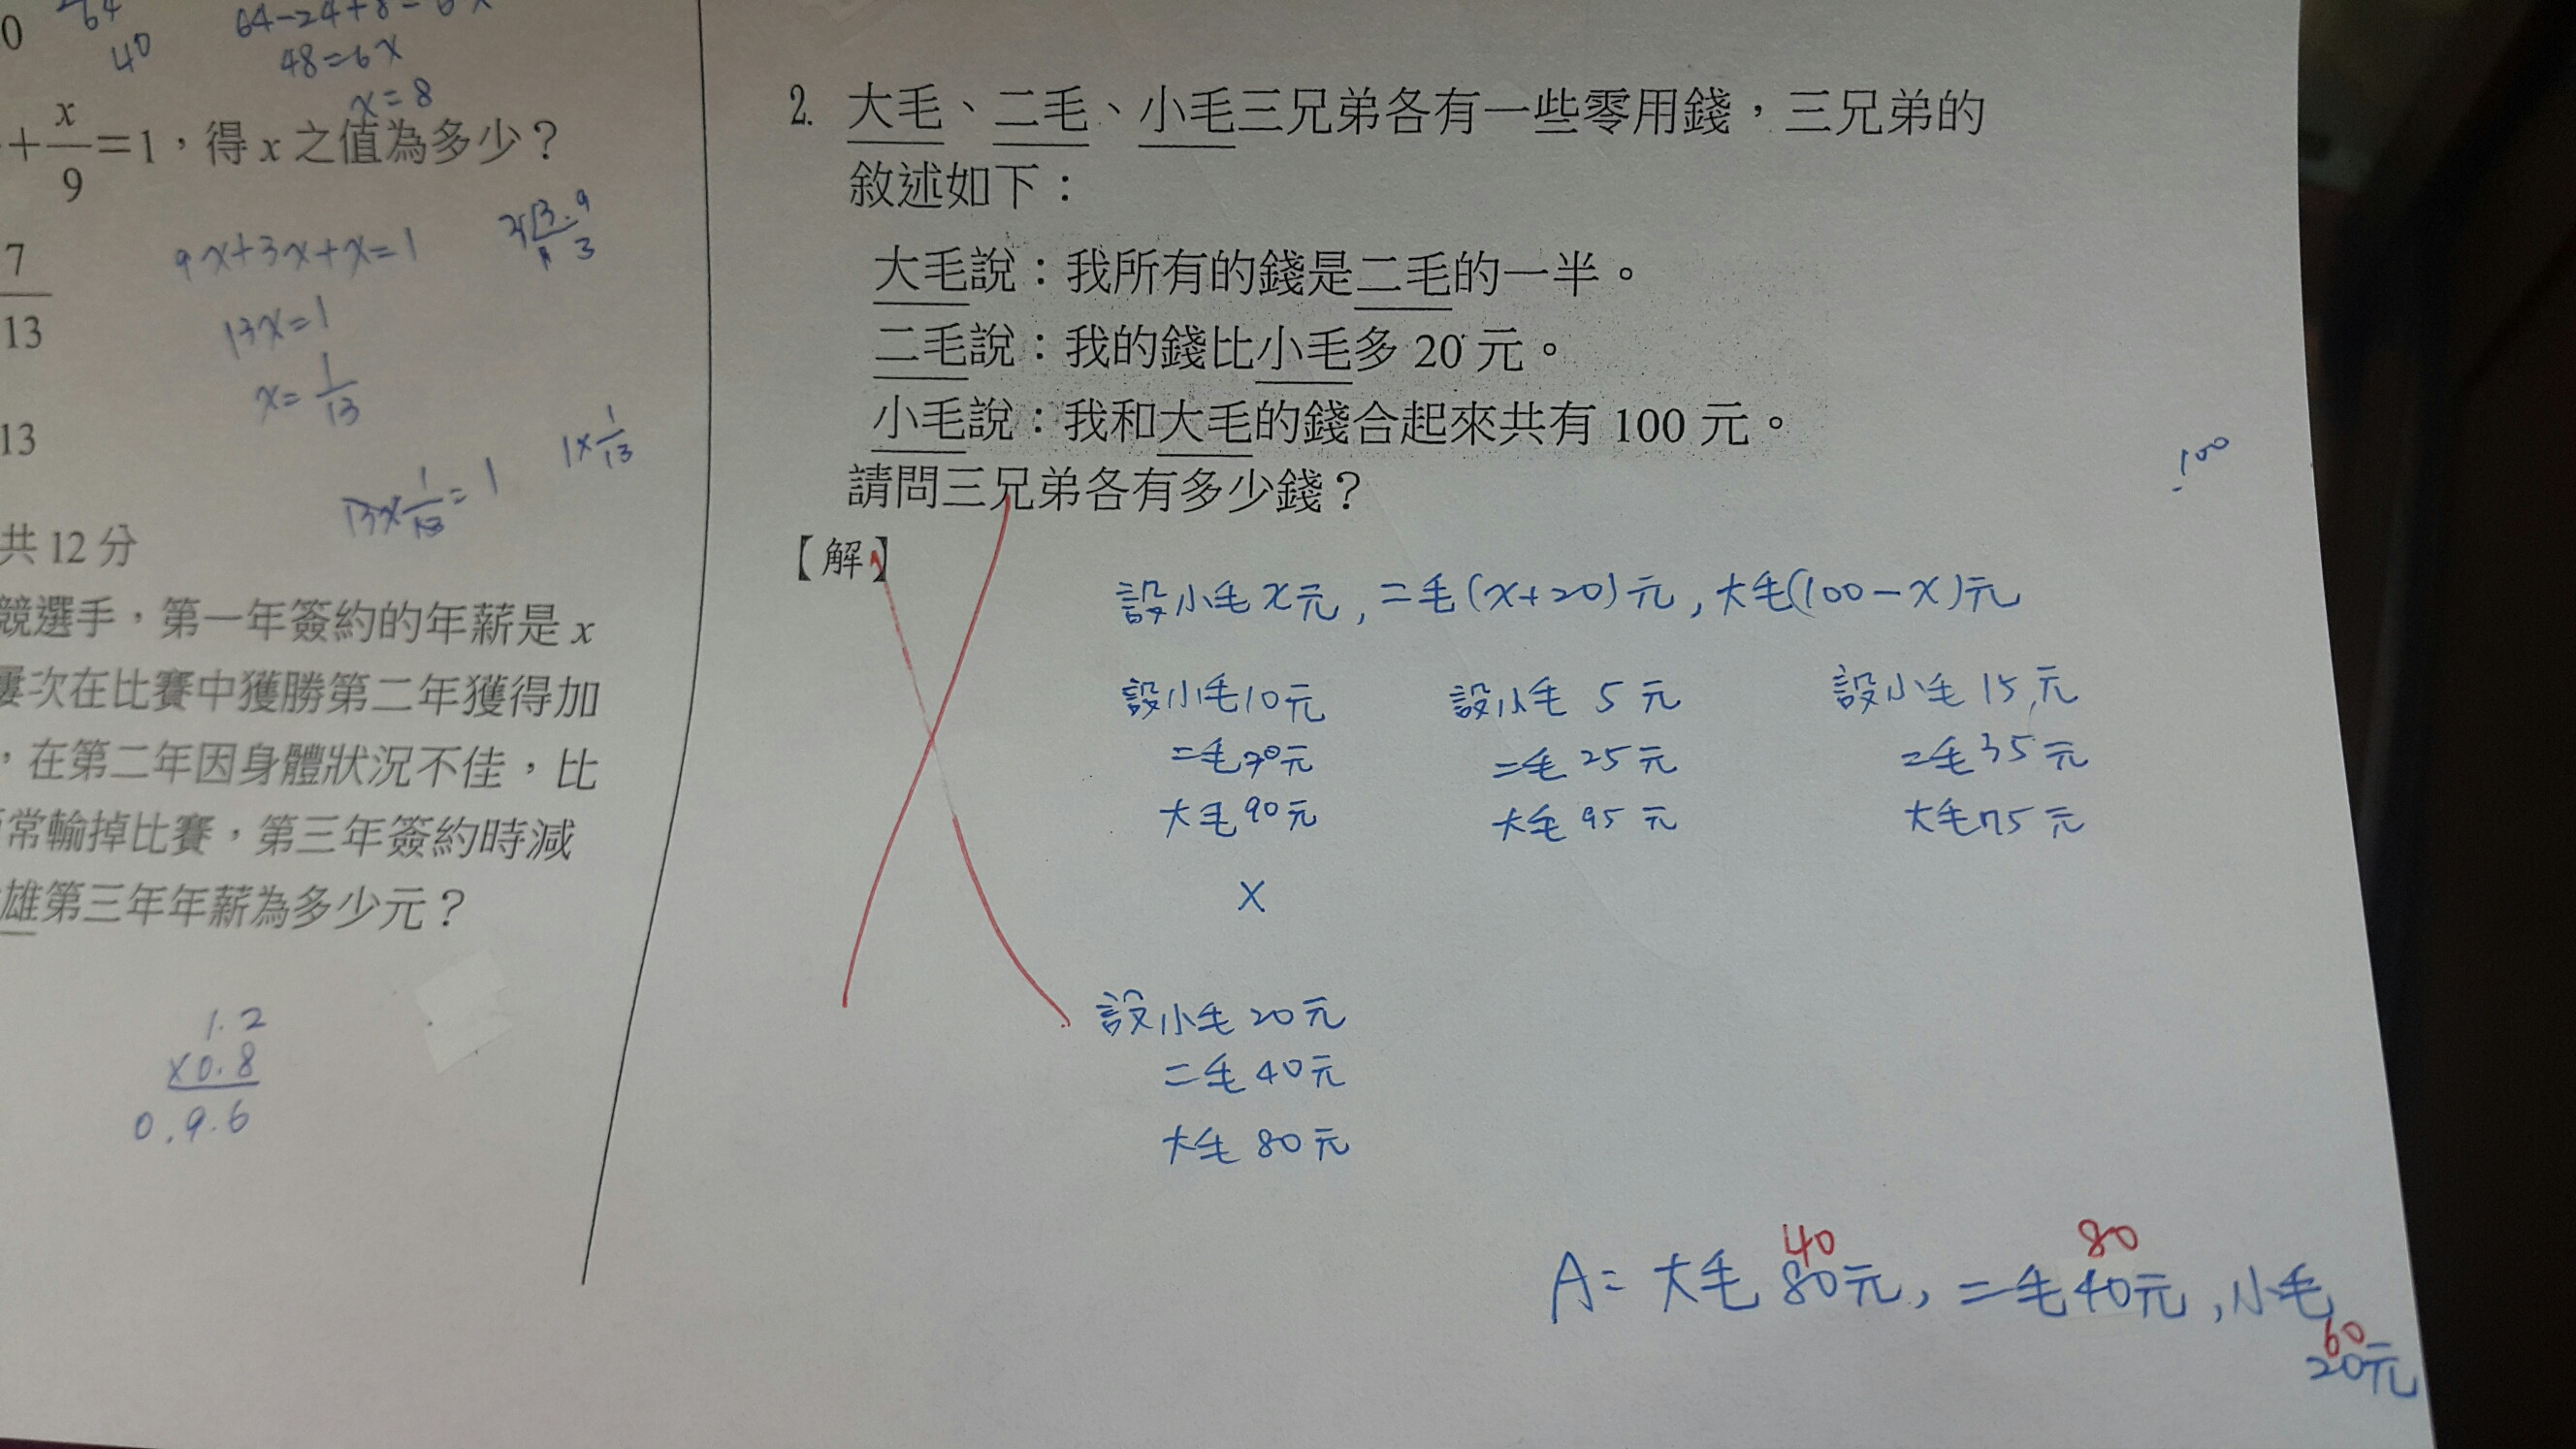 64
40
64-24+8=6x
48=6x
x=8
+x/9=1，得 x 之值為多少？
7/13
9x+3x+x=1
13x=1
x=1/13
13
13×1/13=1
1×1/13
共 12 分
競選手，第一年簽約的年薪是 x
屢次在比賽中獲勝第二年獲得加
，在第二年因身體狀況不佳，比
常輸掉比賽，第三年簽約時減
雄第三年年薪為多少元？
1.2
×0.8
0.9.6
2. 大毛、二毛、小毛三兄弟各有一些零用錢，三兄弟的
敘述如下：
大毛說：我所有的錢是二毛的一半。
二毛說：我的錢比小毛多 20 元。
小毛說：我和大毛的錢合起來共有 100 元。
請問三兄弟各有多少錢？
100
【解】
設小毛x元，二毛(x+20)元，大毛(100-x)元
設小毛10元
二毛30元
大毛90元
X
設小毛 5 元
二毛 25 元
大毛 95 元
設小毛 15 元
二毛 35 元
大毛75 元
設小毛 20 元
二毛 40 元
大毛 80 元
40 80
A= 大毛 80元，二毛 40元，小毛
60
20元